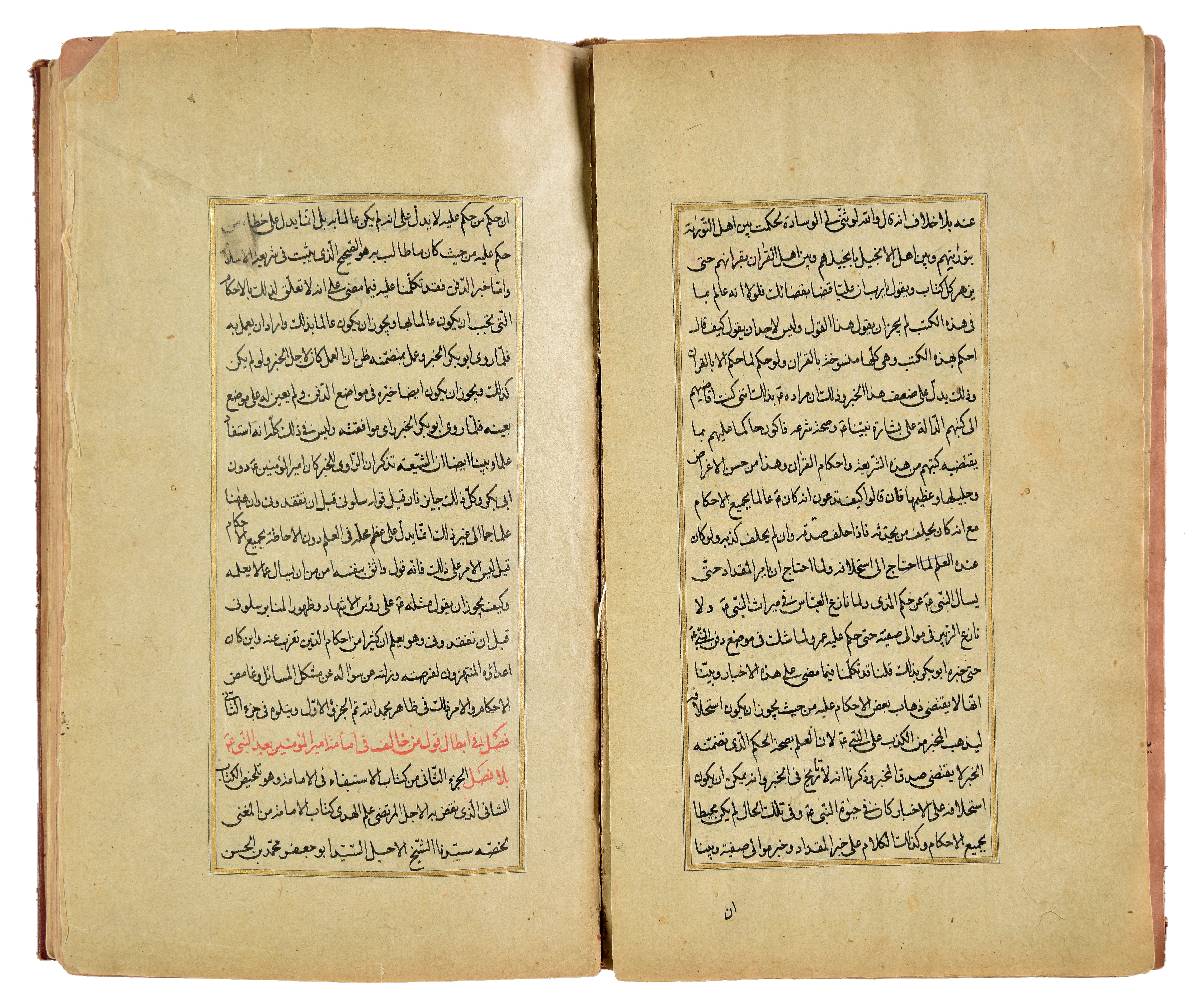 عنه بلا خلاف انه قال والله لو ثنّى لى الوسادة لحكمت بين اهل التوراة
بتوراتهم وبين اهل الانجيل بانجيلهم وبين اهل القران بقرانهم حتى
يزهر كل كتاب ويقول يا رب ان عليا قضا بقضائك فلولا انه عالم بما
فى هذه الكتب لم يجز ان يقول هذا القول وليس لاحد ان يقول كيف قال
احكم بهذه الكتب وهى كلها منسوخة بالقران ولو حكم لما حكم الا بالقران
وذلك يدل على ضعف هذا الخبر وذلك ان مراده ع بذلك اننى كنت اقاضيهم
الى كتبهم الدالة على بشارة نبينا ع وصحة شرعه فاكون حاكما عليهم بما
يقتضيه كتبهم من هذه الشريعة واحكام القران وهذا من حسن الاغراض
وجليلها وعظيمها فان قالوا كيف تدعون انه كان ع عالما بجميع الاحكام
مع انه كان يحلف من يحدثه فاذا حلف صدقه وان لم يحلف كذبه ولو كان
عنده العلم لما احتاج الى استحلافه ولما احتاج ان يامر المقداد حتى
يسال النبى ع عن حكم المذى ولما نازع العباس فى ميراث النبى ع ولا
نازع الزبير فى موالى صفية حتى حكم عليه عمر ولما شك فى موضع دفن النبى ع
حتى خبره ابو بكر بذلك قلنا قد تكلمنا فيما مضى على هذه الاخبار وبينا
انها لا يقتضى ذهاب بعض الاحكام عليه من حيث يجوز ان يكون استحلافه
ليرهب المخبر من الكذب على النبى ع لان العلم بصحة الحكم الذى تضمنه
الخبر لا يقتضى صدق المخبر وذكرنا انه لا تاريخ فى الخبر وانه يمكن ان يكون
استحلافه على الاخبار كان فى حيوة النبى ع وفى تلك الحال لم يكن محيطا
بجميع الاحكام وكذلك الكلام على خبر المقداد وخبر موالى صفية وبينا
ان
ان حكم من حكم عليه لا يدل على انه لم يكن عالما به بل انما يدل على خطاء من
حكم عليه من حيث كان ما طالب به هو الصحيح الذى يثبت فى شريعة الاسلام
واما خبر الدفن فقد تكلمنا عليه فيما مضى على انه لا تعلق لذلك بالاحكام
التى يجب ان يكون عالما بها ويجوز ان يكون عالما بذلك واراد ان يعمل به
فلما روى ابو بكر الخبر وعلم بمتضمنه ظن ان العمل كان لاجل الخبر ولو لم يكن
كذلك ويجوز ان يكون ايضا خيره فى مواضع الدفن ولم يعين له على موضع
بعينه فلما روى ابو بكر الخبر راى موافقته وليس فى ذلك كله انه استفاد
علما وبينا ايضا ان الشيعة تذكر ان الراوى للخبر كان امير المؤمنين ع دون
ابى بكر وكل ذلك جايز فان قيل قوله سلونى قبل ان تفقدونى وان ههنا
علما جما الى غير ذلك انما يدل على عظم محله فى العلم دون الاحاطة بجميع الاحكام
قيل ليس الامر على ذلك فانه قول واثق بنفسه امن من ان يسال عما لا يعلمه
وكيف يجوز ان يقول مثله ع على رؤس الاشهاد وظهور المنابر سلونى
قبل ان تفقدونى وهو يعلم ان كثيرا من احكام الدين تعزب عنه واين كان
اعدائه المنتهزون لفرصته وزلته عن سواله عن مشكل المسائل وغامض
الاحكام والامر فى ذلك ظاهر بحمد الله تم الجزؤ الاول ويتلوه فى جزء الثانى
فصل فى ابطال قول من خالف فى امامة امير المؤمنين بعد النبى ع
بلا فصل الجزء الثانى من كتاب الاستيفاء فى الامامة وهو تلخيص الكتاب
الشافى الذى نقض به الاجل المرتضى علم الهدى كتاب الامامة من المغنى
لخصه سيدنا الشيخ الاجل السيد ابو جعفر محمد بن الحسن